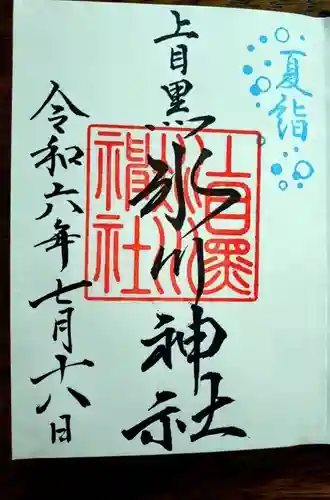 夏詣
上目黒
氷川神社
令和六年七月十八日
上目黒氷川神社